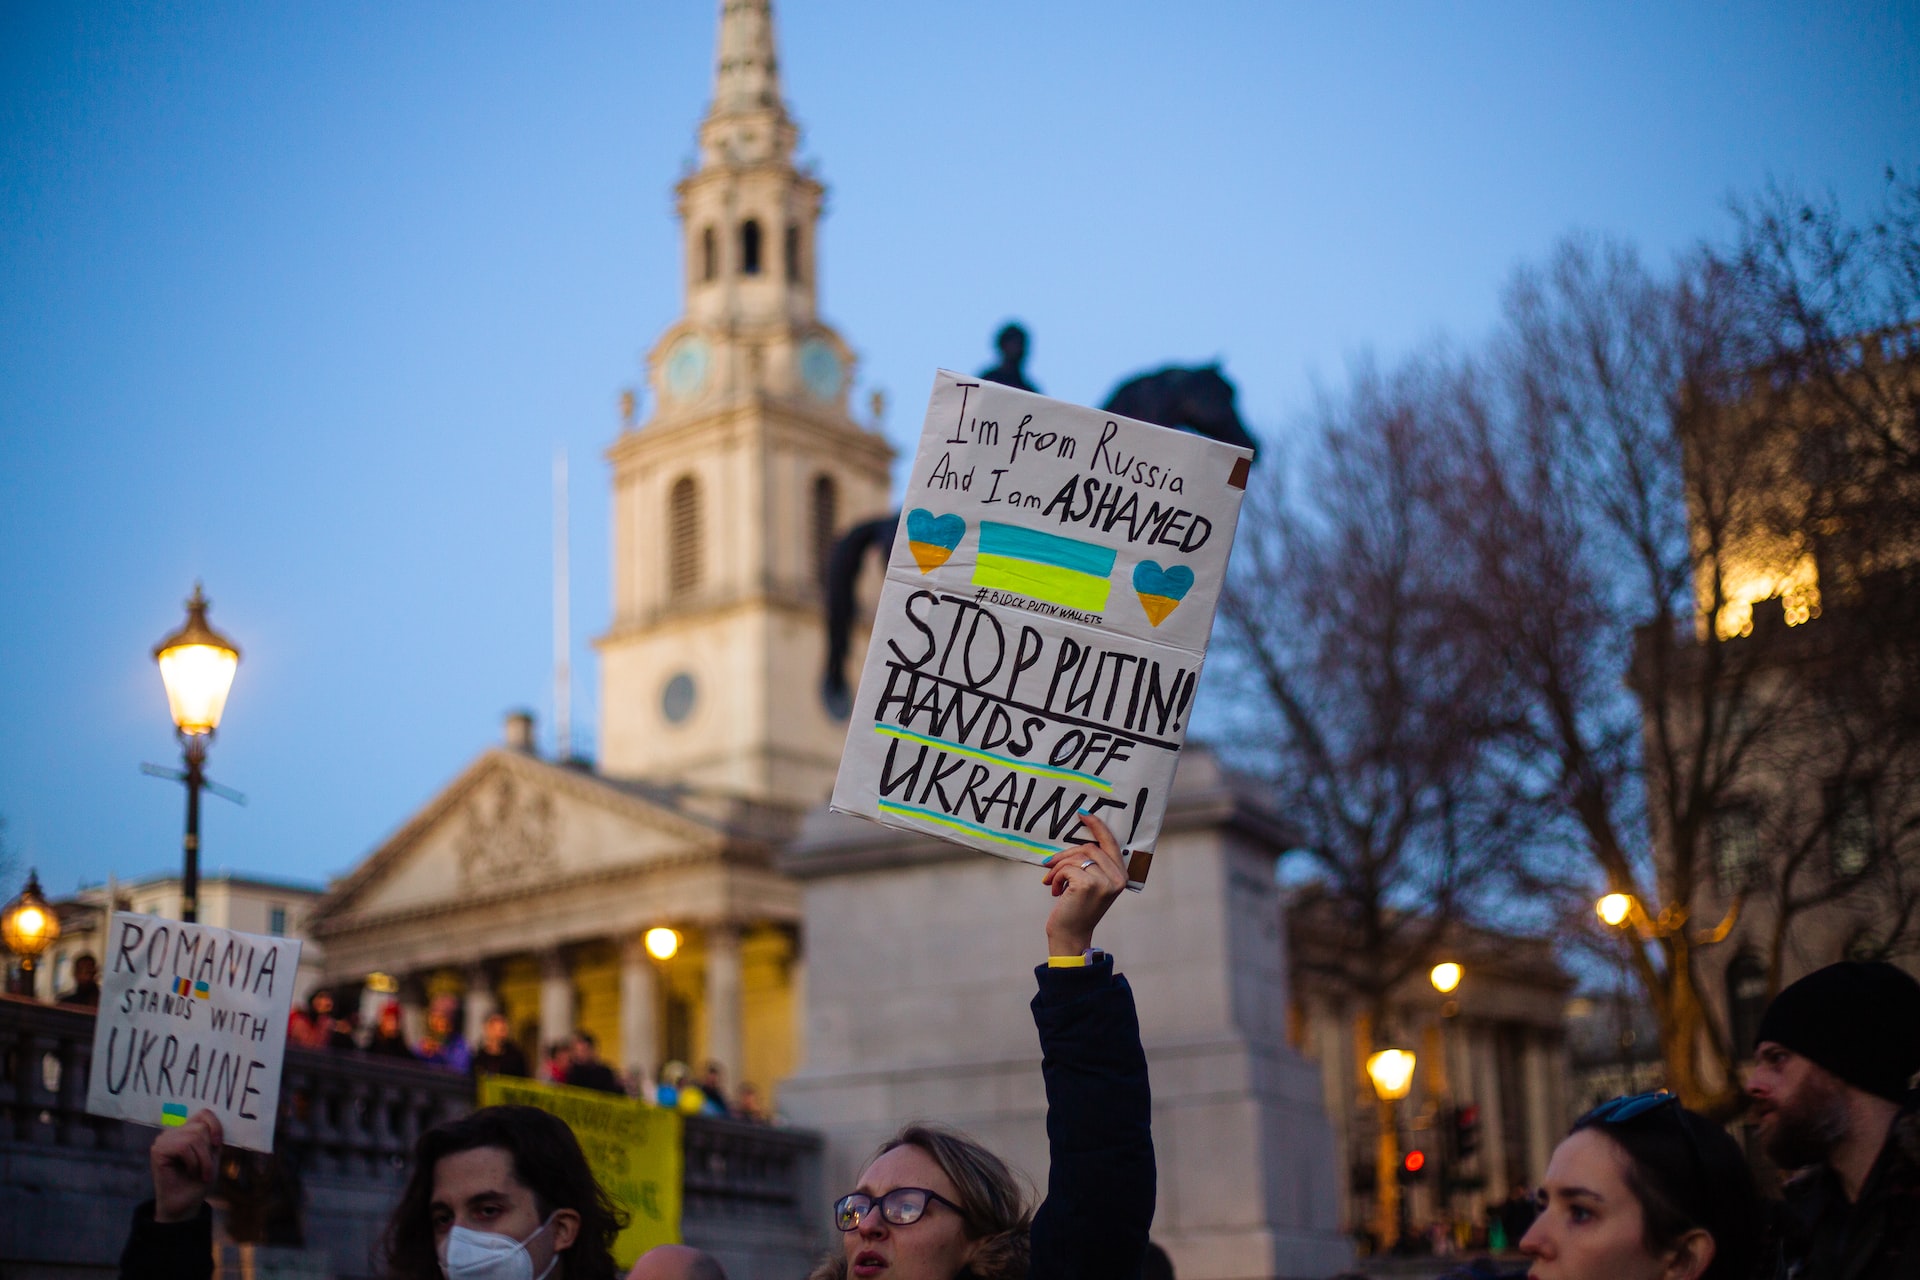 I'm from Russia
And I am ASHAMED
#BLOCK PUTIN WALLETS
STOP PUTIN!
HANDS OFF
UKRAINE!
ROMANIA
STANDS WITH
UKRAINE